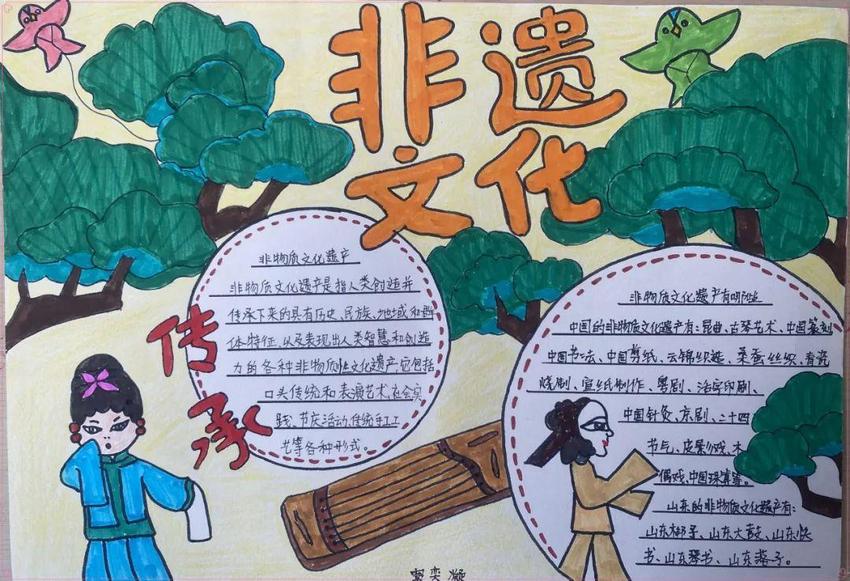 非遗
文化
传
承
非物质文化遗产
非物质文化遗产是指人类创造并
传承下来的具有历史、民族、地域和群
体特征,以及表现出人类智慧和创造
力的各种非物质性文化遗产,它包括
口头传统和表演艺术、社会实
践、节庆活动、传统手工工
艺等各种形式。
非物质文化遗产有哪些
中国的非物质文化遗产有:昆曲、古琴艺术、中国篆刻
中国书法、中国剪纸、云锦织造、桑蚕丝织、青瓷
烧制、宣纸制作、粤剧、活字印刷、
中国针灸、京剧、二十四
节气、皮影戏、木
偶戏、中国珠算等。
山东的非物质文化遗产有:
山东梆子、山东大鼓、山东快
书、山东琴书、山东落子。
奕凝